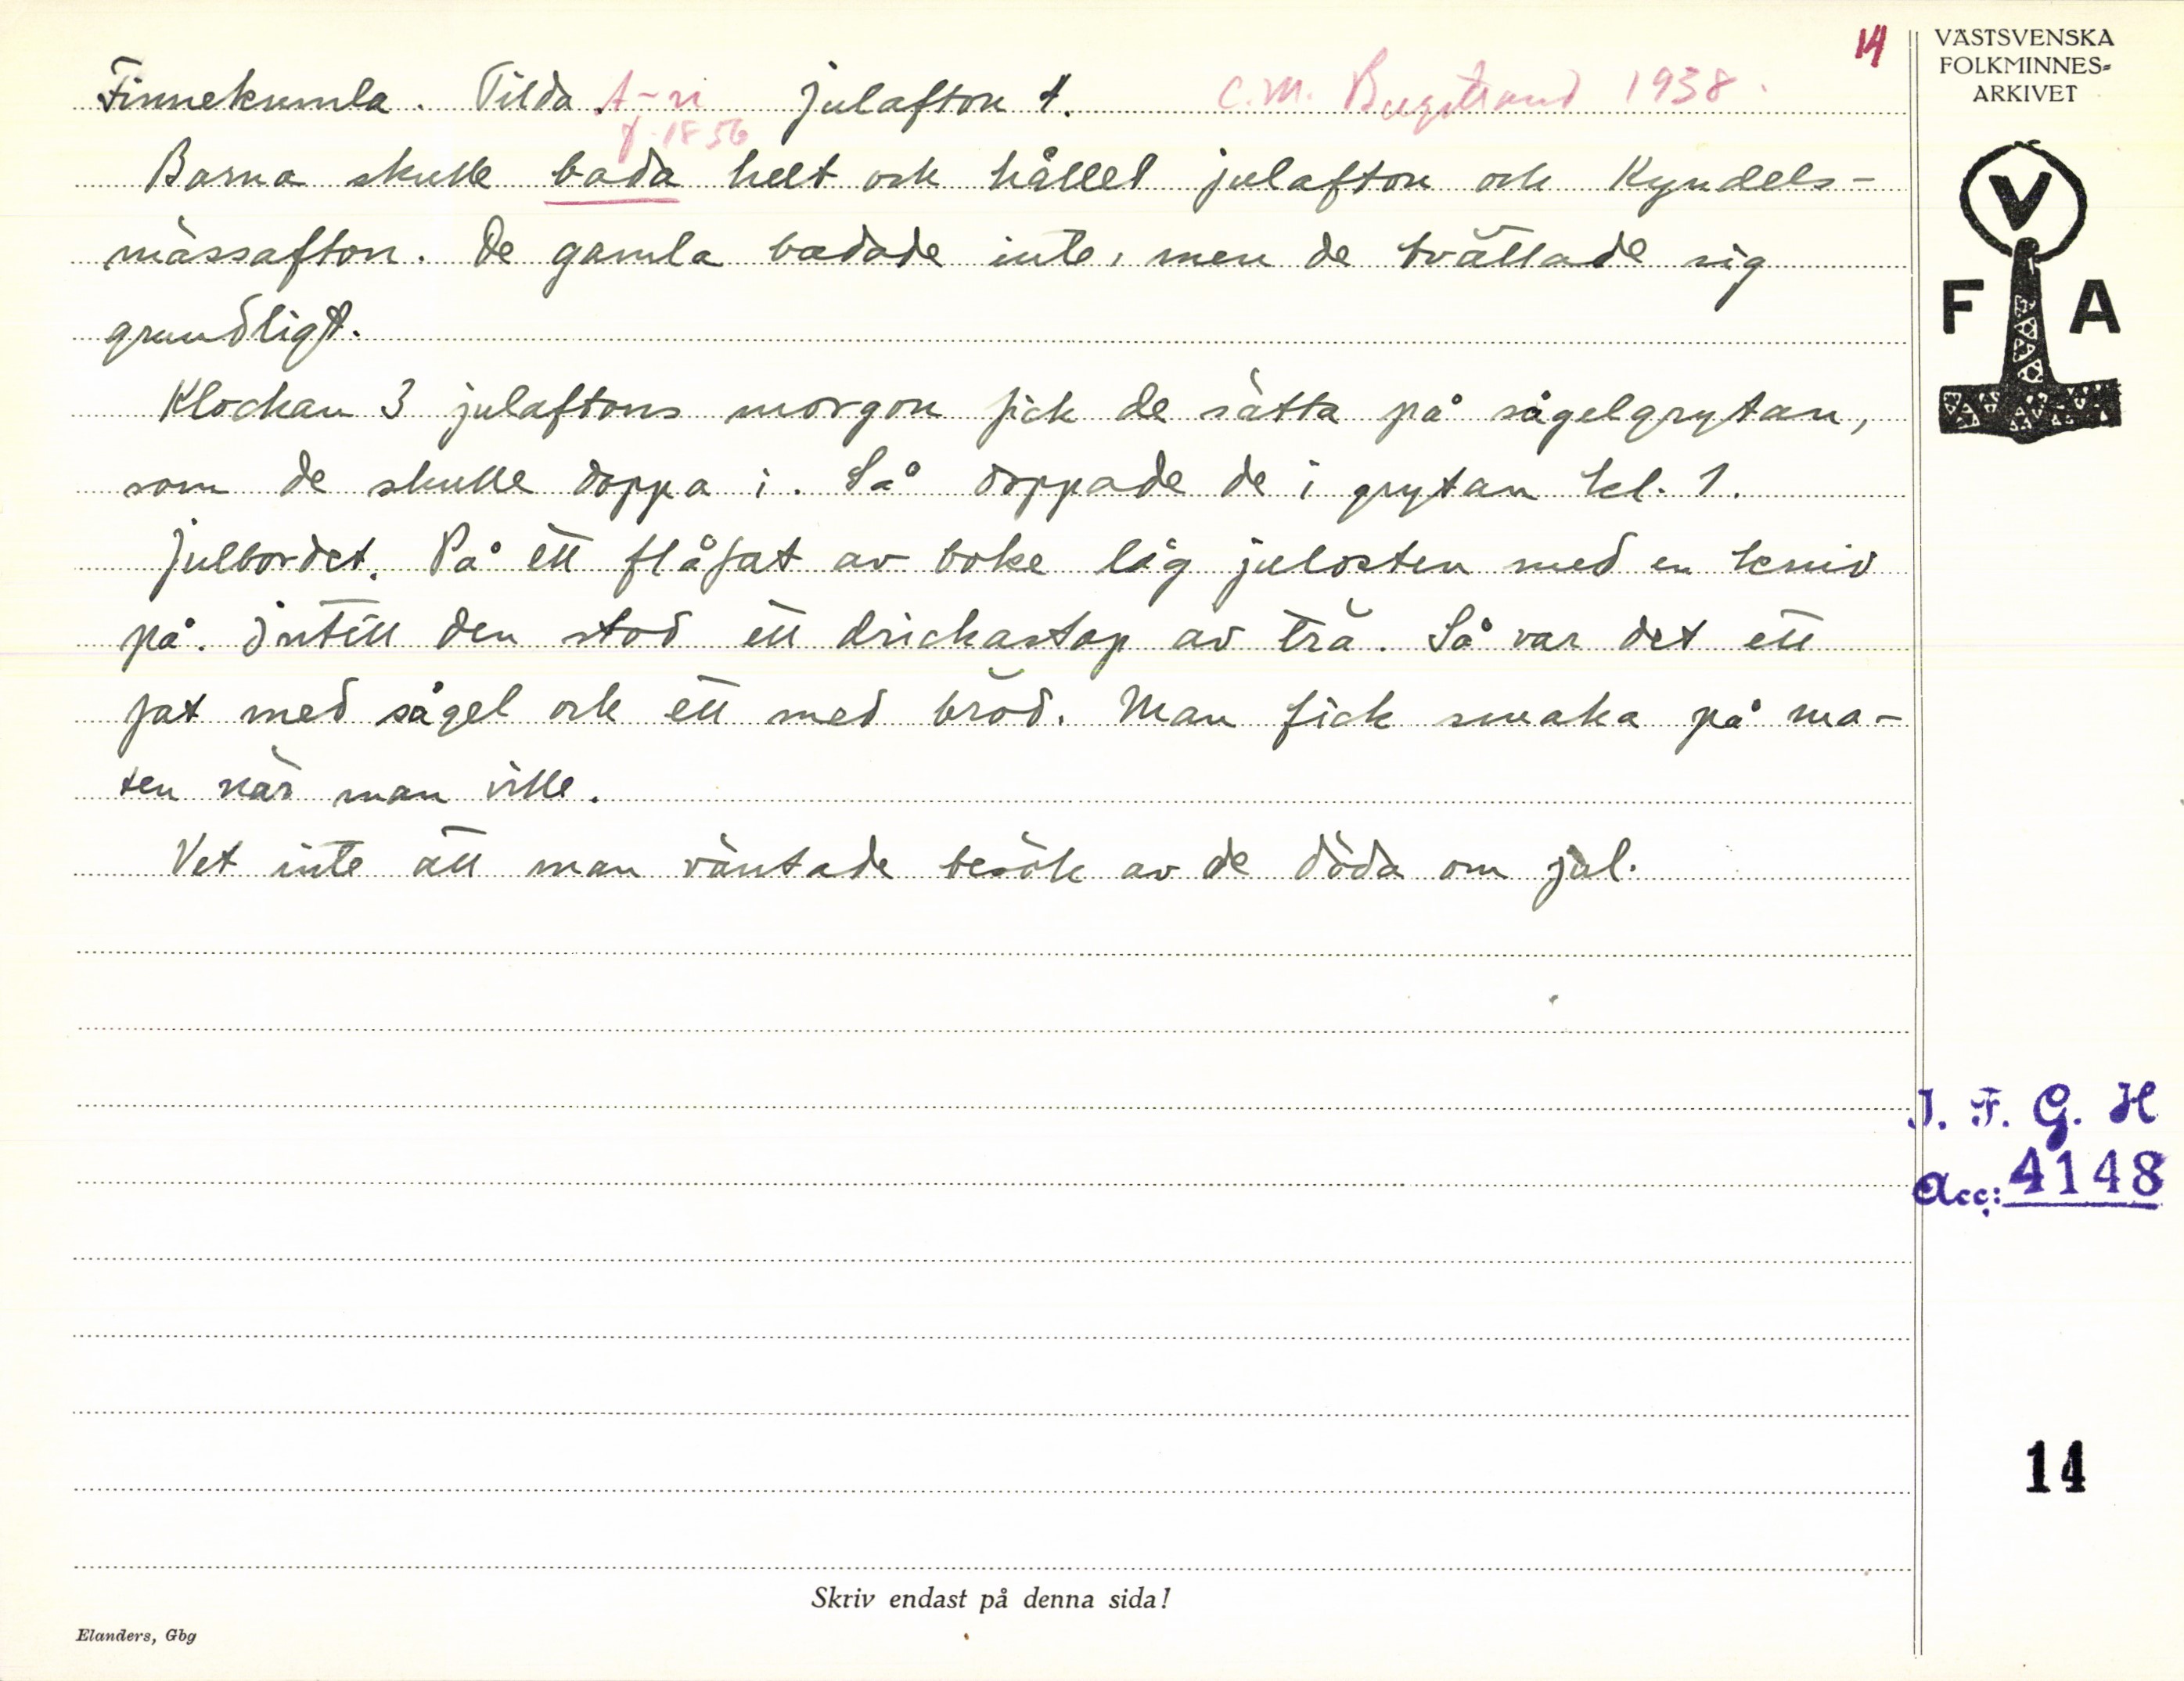 14
Finnekumla. Tilda A-n Julafton 1. C.M. Bergstrand 1938.
f. 1856
Barna skulle bada helt och hållet julafton och Kyndels-
mässafton. De gamla badade inte, men de tvättade sig
grundligt.
Klockan 3 julaftons morgon fick de sätta på sågelgrytan,
som de skulle doppa i. Så doppade de i grytan kl. 1.
Julbordet. På ett flåfat av boke låg julosten med en kniv
på. Intill den stod ett drickastop av trä. Så var det ett
fat med sågel och ett med bröd. Man fick smaka på ma-
ten när man ville.
Vet inte att man väntade besök av de döda om jul.
VÄSTSVENSKA
FOLKMINNES-
ARKIVET
V
F A
I. F. G. H
Acc: 4148
14
Skriv endast på denna sida!
Elanders, Gbg